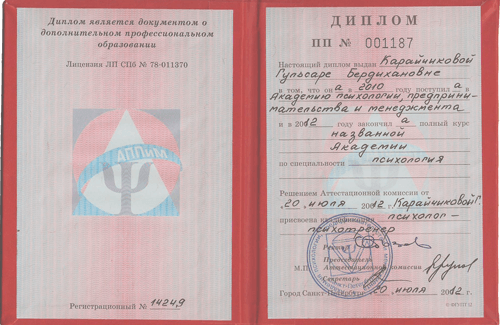 Диплом является документом о
дополнительном профессиональном
образовании
Лицензия ЛП СПб № 78-011370
МИППА
Регистрационный № 14249
ДИПЛОМ
ПП № 001187
Настоящий диплом выдан Карайчиковой
Гульсаре Бердихановне
в том, что она в 2010 году поступила в
Академию психологии, предприни-
мательства и менеджмента
и в 2012 году закончила полный курс
названной
Академии
по специальности психология
Решением Аттестационной комиссии от
„20„ июля 2012. Карайчиковой Г.
присвоена квалификация психолог-
психотренер
Ректор
Председатель
М.П. Аттестационной комиссии
Секретарь
Город Санкт-Петербург 20 июля 2012.